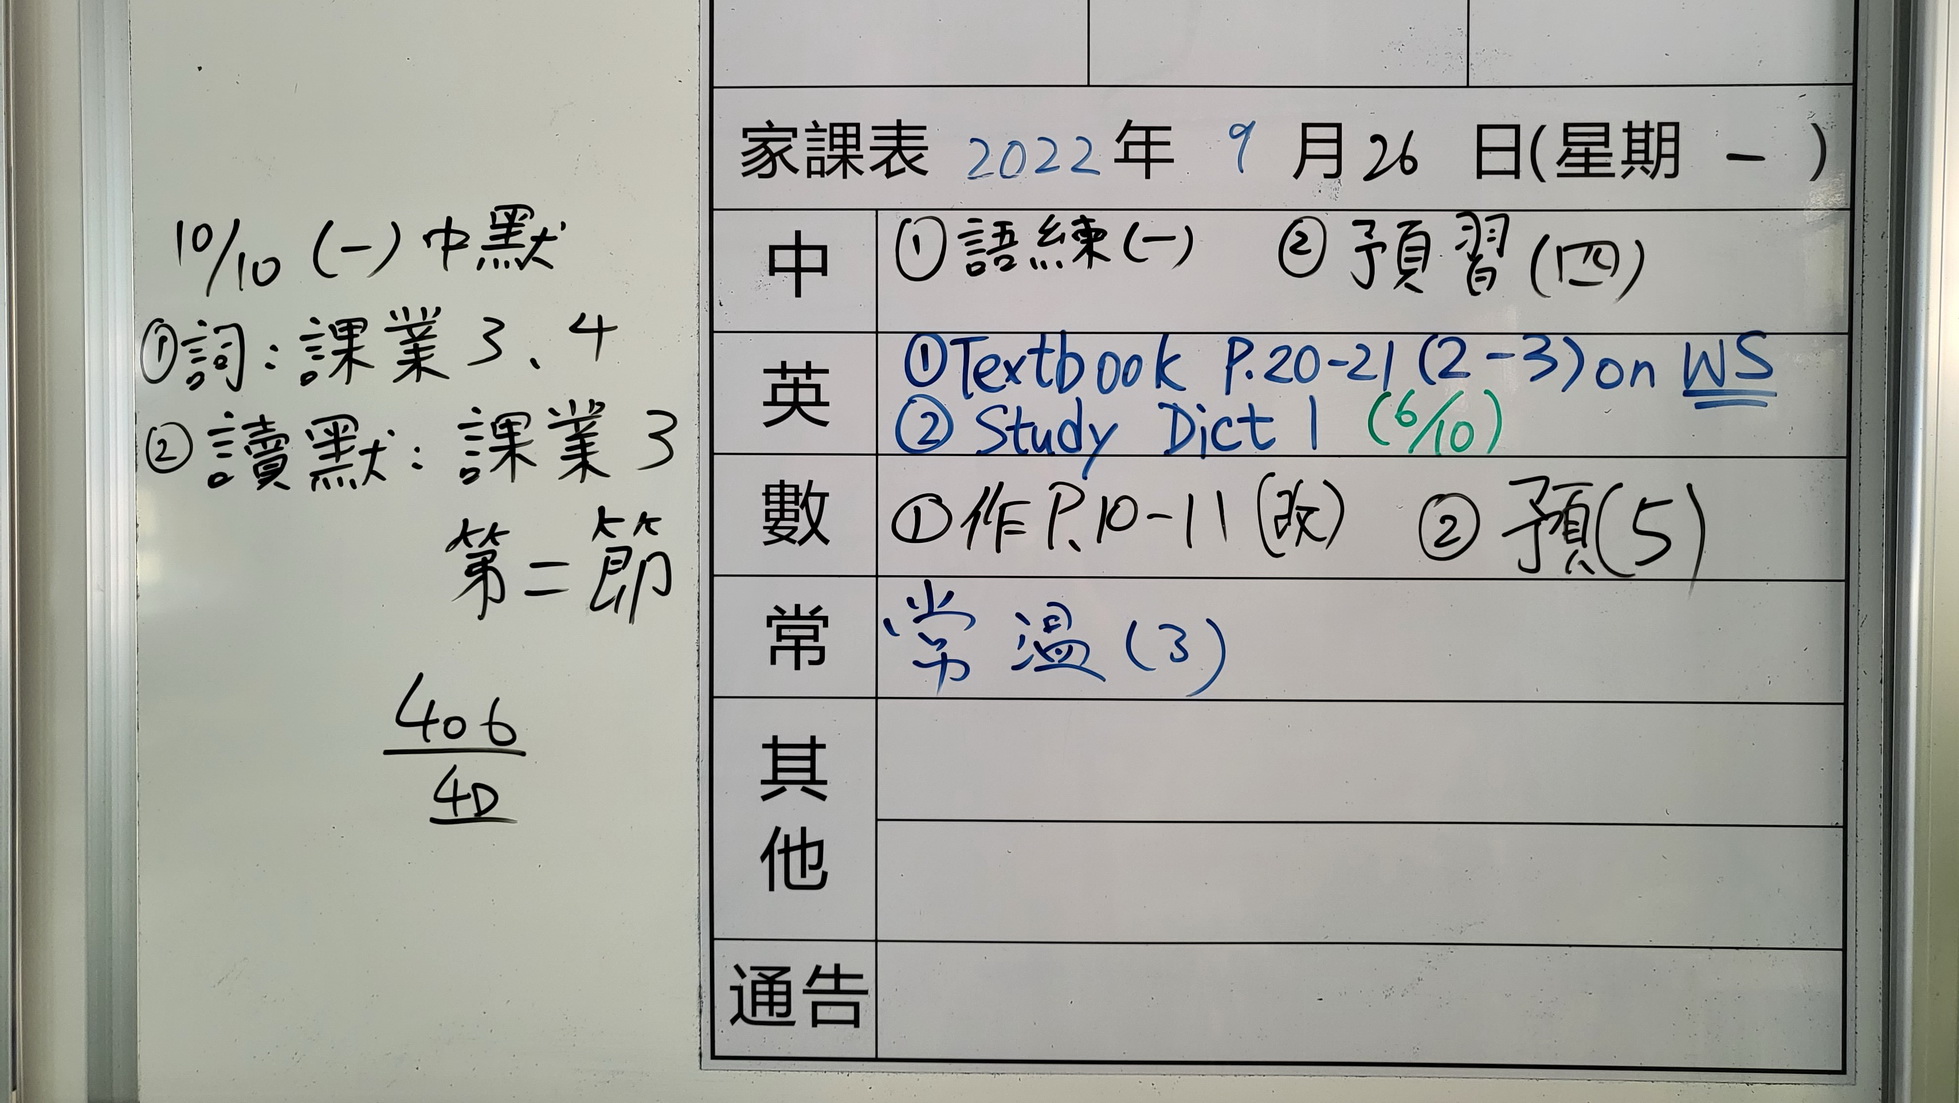 10/10 (一) 中默
①詞:課業3、4
②讀默:課業3
第二節
406
4D
家課表 2022年 9月26日(星期一)
中 ①語練(一) ②預習(四)
英 ①Textbook P.20-21 (2-3) on WS
②Study Dict 1 (6/10)
數 ①作P.10-11(改) ②預(5)
常 常溫(3)
其他
通告